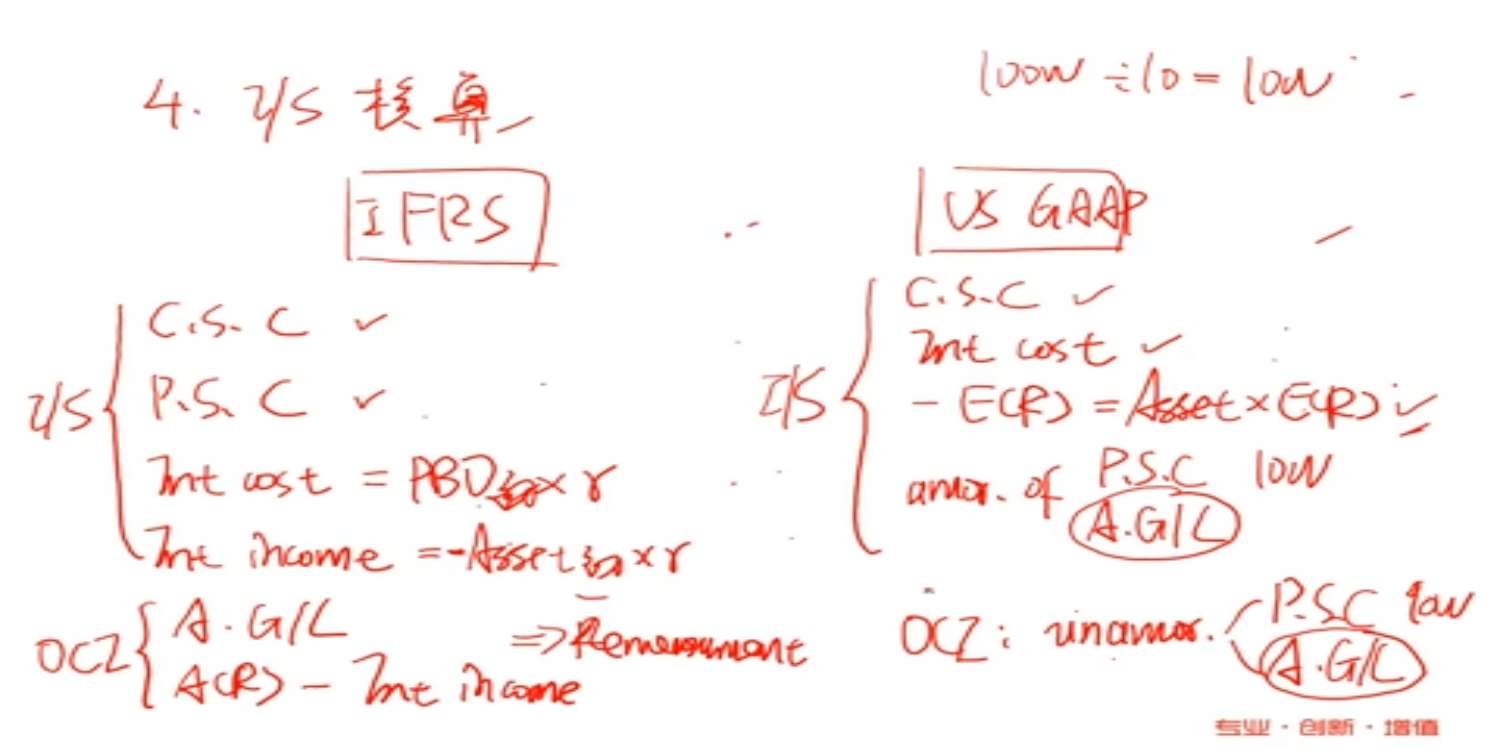 4. I/S 核算
100W ÷ 10 = 10W
IFRS
I/S
C.S.C ✓
P.S.C ✓
Int cost = PBO初 × r
Int income = -Asset初 × r
OCI
A.G/L
A(R) - Int income
=> Remeasurement
US GAAP
I/S
C.S.C ✓
Int cost ✓
- E(R) = Asset × E(R) ✓
amor. of P.S.C 10W
A.G/L
OCI: unamor. P.S.C 90W
A.G/L
专业·创新·增值